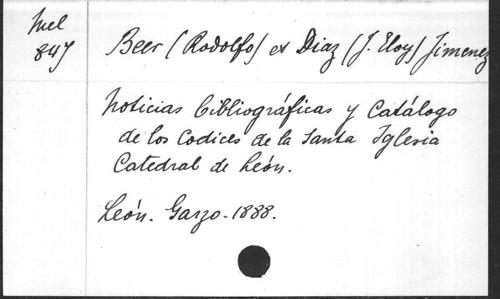 Mel
847
Beer (Rodolfo) et Diaz (J. Eloy) Jimenez
Noticias bibliográficas y Catálogo
de los Codices de la Santa Iglesia
Catedral de León.
León. Garzo. 1888.